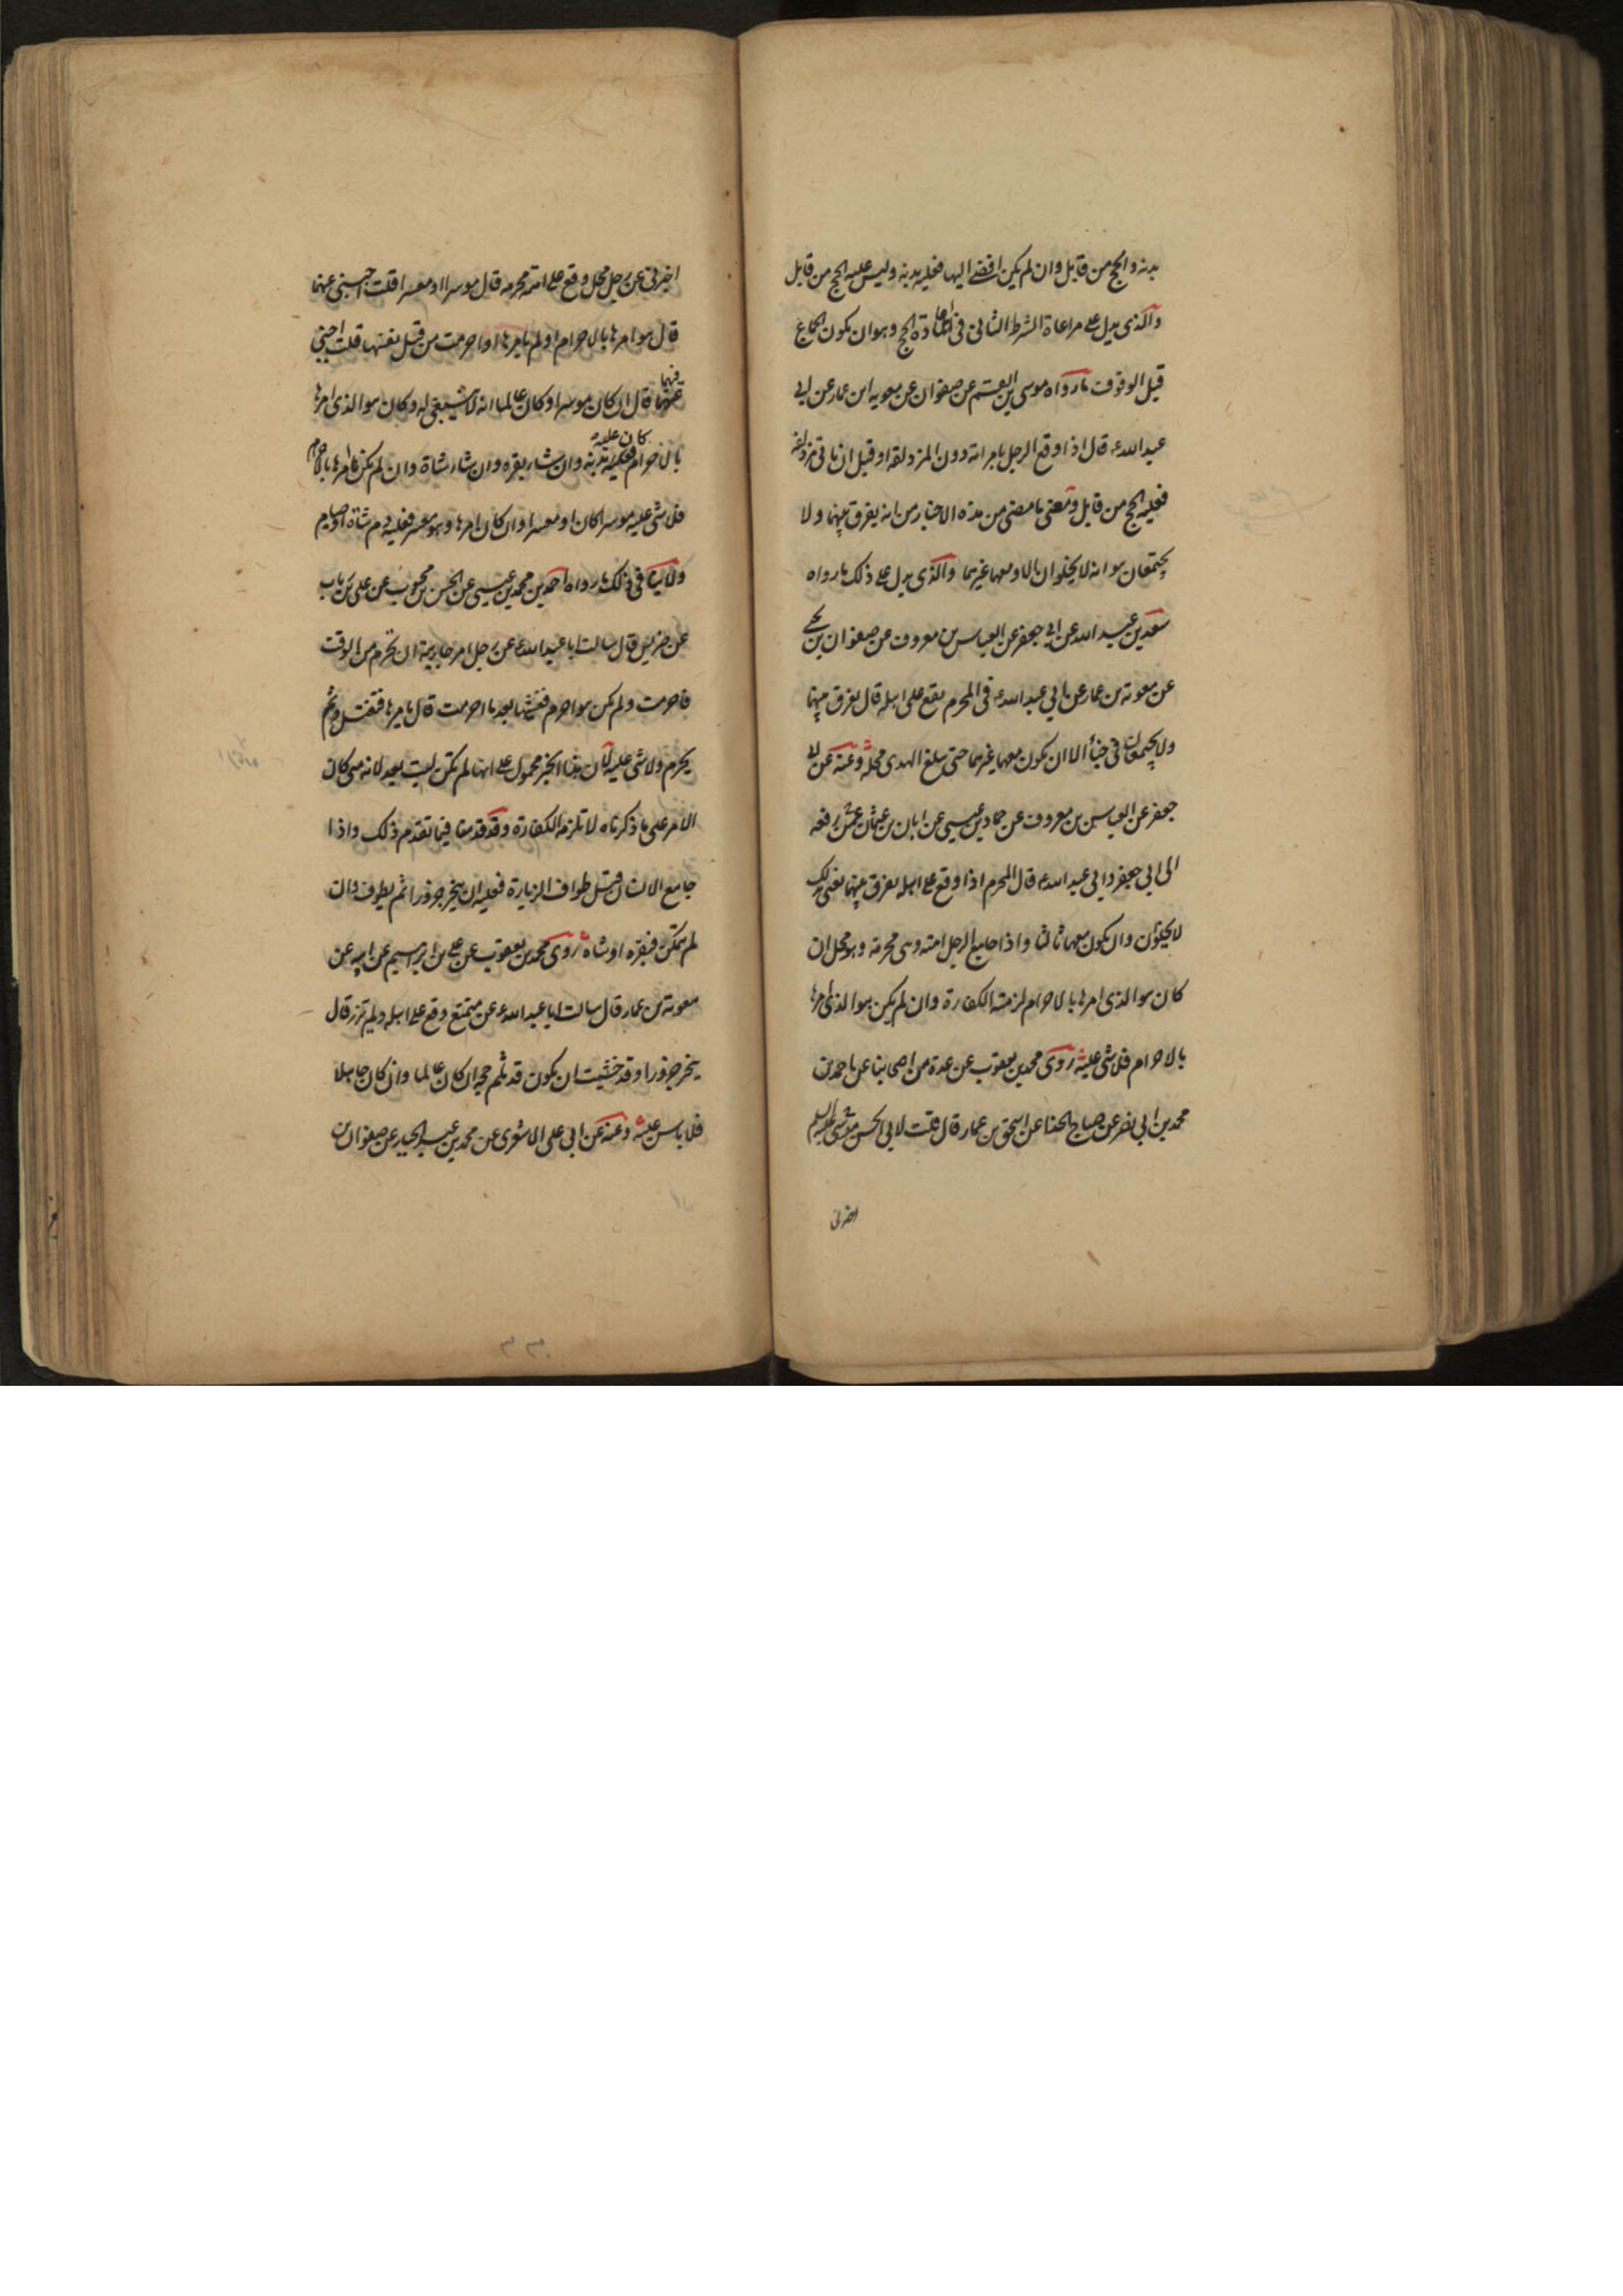 بدنه والحج من قابل وان لم يكن افضى اليها فعليه بدنه وليس عليه الحج من قابل
والذى يدل على مراعاة الشرط الثانى فى اعادة الحج وهو ان يكون الجماع
قبل الوقوف ما رواه موسى بن القسم عن صفوان عن معويه ابن عمار عن ابى
عبد الله ع قال اذا وقع الرجل بامراته دون المزدلفه او قبل ان ياتى مزدلفه
فعليه الحج من قابل ومعنى ما مضى من هذه الاخبار من انه يفرق بينهما ولا
يجتمعان هو انه لا يخلوان الا ومعهما غيرهما والذى يدل على ذلك ما رواه
سعد بن عبد الله عن ابى جعفر عن العباس بن معروف عن صفوان بن يحيى
عن معوية بن عمار عن ابى عبد الله ع فى المحرم يقع على اهله قال يفرق بينهما
ولا يجتمعان فى خباء الا ان يكون معهما غيرهما حتى يبلغ الهدى محله وعنه عن ابى
جعفر عن العباس بن معروف عن حماد بن عيسى عن ابان بن عثمان رفعه
الى ابى جعفر وابى عبد الله ع قال المحرم اذا وقع على اهله يفرق بينهما يعنى بذلك
لا يخلوان وان يكون معهما ثالثا واذا جامع الرجل امته وهى محرمة وهو محل ان
كان هو الذى امرها بالاحرام لزمته الكفارة وان لم يكن هو الذى امرها
بالاحرام فلا شى عليه روى محمد بن يعقوب عن عدة من اصحابنا عن احمد بن
محمد بن ابى نصر عن صباح الحذا عن اسحق بن عمار قال قلت لابى الحسن موسى عليه السلم
اخبرنى
اخبرنى عن رجل محل وقع على امته محرمه قال موسرا او معسرا قلت اجبنى عنهما
قال هو امرها بالاحرام او لم يامرها او احرمت من قبل نفسها قلت اجبنى
فيهما
عنهما قال ان كان موسرا وكان عالما انه لا ينبغى له وكان هو الذى امرها
كان عليه
بالاحرام فعليه بدنه وان شاء بقره وان شاء شاة وان لم يكن امرها بالاحرام
فلا شى عليه موسرا كان او معسرا وان كان امرها وهو معسر فعليه دم شاة او صيام
ولا ينافى ذلك ما رواه احمد بن محمد بن عيسى عن الحسن بن محبوب عن على بن رباب
عن ضريس قال سالت ابا عبد الله ع عن رجل امر جاريته ان تحرم من الوقت
فاحرمت ولم يكن هو احرم فغشيها بعد ما احرمت قال يامرها فتغتسل ثم
يحرم ولا شى عليه لان هذا الخبر محمول على انها لم تكن لبت بعد لانه متى كان
الامر على ما ذكرناه لا تلزمه الكفارة وقد قدمنا فيما تقدم ذلك واذا
جامع الانسان قبل طواف الزيارة فعليه ان ينحر جزورا ثم يطوف وان
لم يتمكن فبقره او شاة روى محمد بن يعقوب عن على بن ابرهيم عن ابيه عن
معوية بن عمار قال سالت ابا عبد الله ع عن متمتع وقع على اهله ولم يزر قال
ينحر جزورا وقد خشيت ان يكون قد ثلم حجه ان كان عالما وان كان جاهلا
فلا باس عليه وعنه عن ابى على الاشعرى عن محمد بن عبد الجبار عن صفوان بن